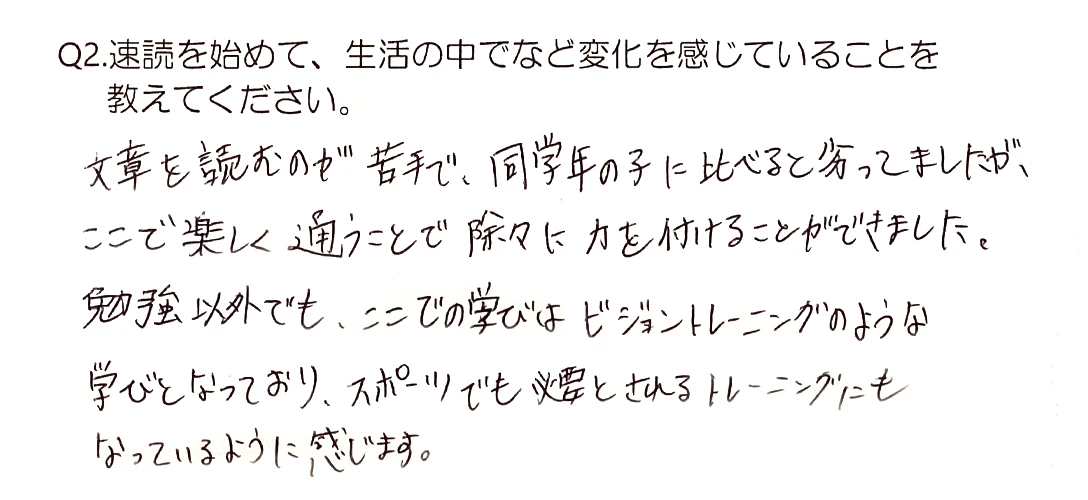 Q2.速読を始めて、生活の中でなど変化を感じていることを
教えてください。
文章を読むのが苦手で、同学年の子に比べると劣ってましたが、
ここで楽しく通うことで除々に力を付けることができました。
勉強以外でも、ここでの学びはビジョントレーニングのような
学びとなっており、スポーツでも必要とされるトレーニングにも
なっているように感じます。